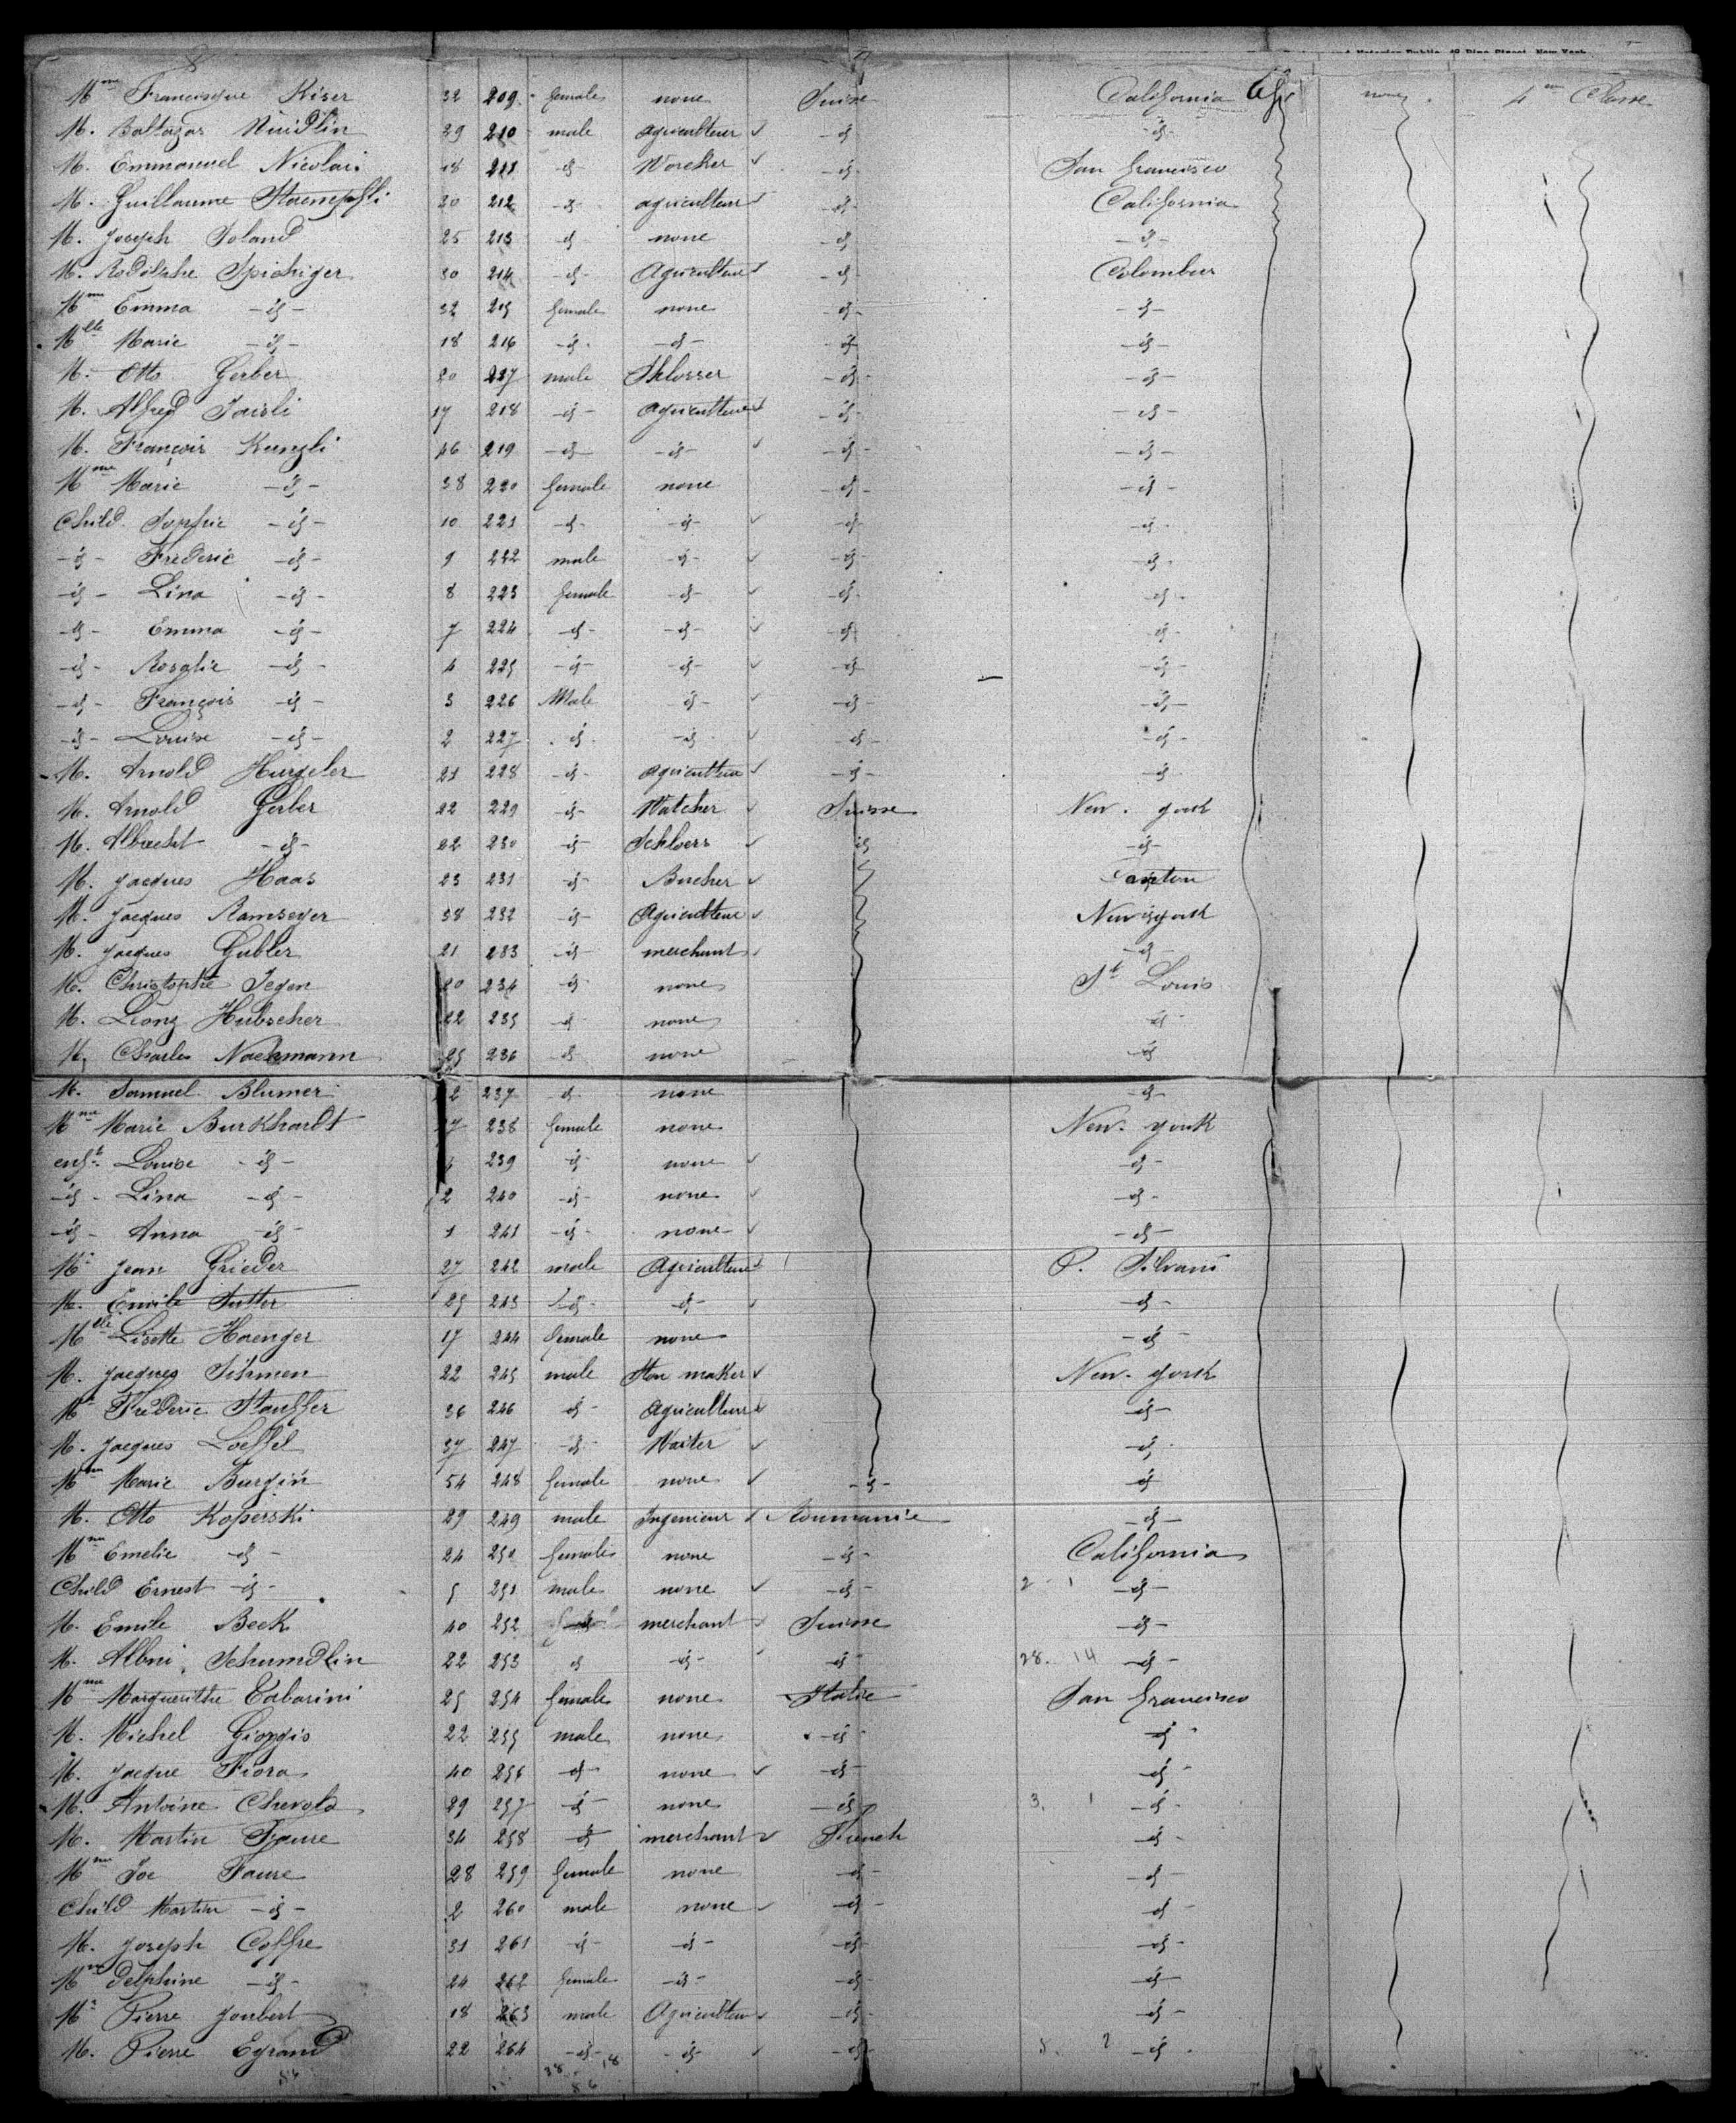 Mme Francisque Kiser 32 209 female none Suisse California none 4me Classe
M. Baltazar 39 210 male agriculteur -id- -id-
M. Emmanuel Nicolai 18 211 -id- Worcher -id- San Francisco
M. Guillaume Staempfli 20 212 -id- agriculteur -id- California
M. Joseph Soland 25 213 -id- none -id- -id-
M. Rodolphe Spichiger 30 214 -id- Agriculteur -id- Colombus
Mme Emma -id- 32 215 female none -id- -id-
Mlle Marie -id- 18 216 -id- -id- -id- -id-
M. Otto Gerber 20 217 male Shlosser -id- -id-
M. Alfred Joisli 17 218 -id- Agriculteur -id- -id-
M. François Kunzli 46 219 -id- -id- -id- -id-
Mme Marie -id- 38 220 female none -id- -id-
Child Sophie -id- 10 221 -id- -id- -id- -id-
-id- Frédéric -id- 9 222 male -id- -id- -id-
-id- Lina -id- 8 223 female -id- -id- -id-
-id- Emma -id- 7 224 -id- -id- -id- -id-
-id- Rosalie -id- 4 225 -id- -id- -id- -id-
-id- François -id- 3 226 Male -id- -id- -id-
-id- Louise -id- 2 227 -id- -id- -id- -id-
M. Arnold Hurzeler 21 228 -id- Agriculteur -id- -id-
M. Arnold Gerber 22 229 -id- Watcher Suisse New-york
M. Albrecht -id- 22 230 -id- Schloers -id- -id-
M. Jacques Haas 23 231 -id- Bucher Canton
M. Jacques Ramseyer 38 232 -id- Agriculteur New york
M. Jacques Gubler 21 233 -id- merchant -id-
M. Christophe Jegen 20 234 -id- none St Louis
M. Lionz Hubscher 22 235 -id- none -id-
M. Charles Nackmann 25 236 -id- none -id-
M. Samuel Blumer 2 237 -id- none -id-
Mme Marie Burkhardt 7 238 female none New-york
enft Louise -id- 239 -id- none -id-
-id- Lina -id- 2 240 -id- none -id-
-id- Anna -id- 1 241 -id- none -id-
M. Jean Grieder 27 242 male Agriculteur P. Silvani
M. Emile Sutter 25 243 -id- -id- -id-
Mlle Lisette Haenger 17 244 female none -id-
M. Jacques Sisman 22 245 male Ston maker New-york
M. Frédéric Stauffer 36 246 -id- Agriculteur -id-
M. Jacques Loeffel 37 247 -id- Waiter -id-
Mme Marie Burgin 54 248 female none -id- -id-
M. Otto Koperski 29 249 male Ingenieur Roumanie -id-
Mme Emelie -id- 24 250 female none -id- California
Child Ernest -id- 5 251 male none -id- 2 1 -id-
M. Emile Beck 40 252 -id- merchant Suisse -id-
M. Albni Schumdlin 22 253 -id- -id- -id- 28. 14 -id-
Mme Marguerithe Tabarini 25 254 female none Italie San Francisco
M. Michel Giorgis 22 255 male none -id- -id-
M. Jacque Fiora 40 256 -id- none -id- -id-
M. Antoine Chevola 29 257 -id- none -id- 3. 1 -id-
M. Martin Faure 34 258 -id- merchant French -id-
Mme Joe Faure 28 259 female none -id- -id-
Child Martin -id- 2 260 male none -id- -id-
M. Joseph Coffre 31 261 -id- -id- -id- -id-
Mme Delphine -id- 24 262 female -id- -id- -id-
M. Pierre Joubert 18 263 male Agriculteur -id- -id-
M. Pierre Eyrand 22 264 -id- -id- -id- -id-